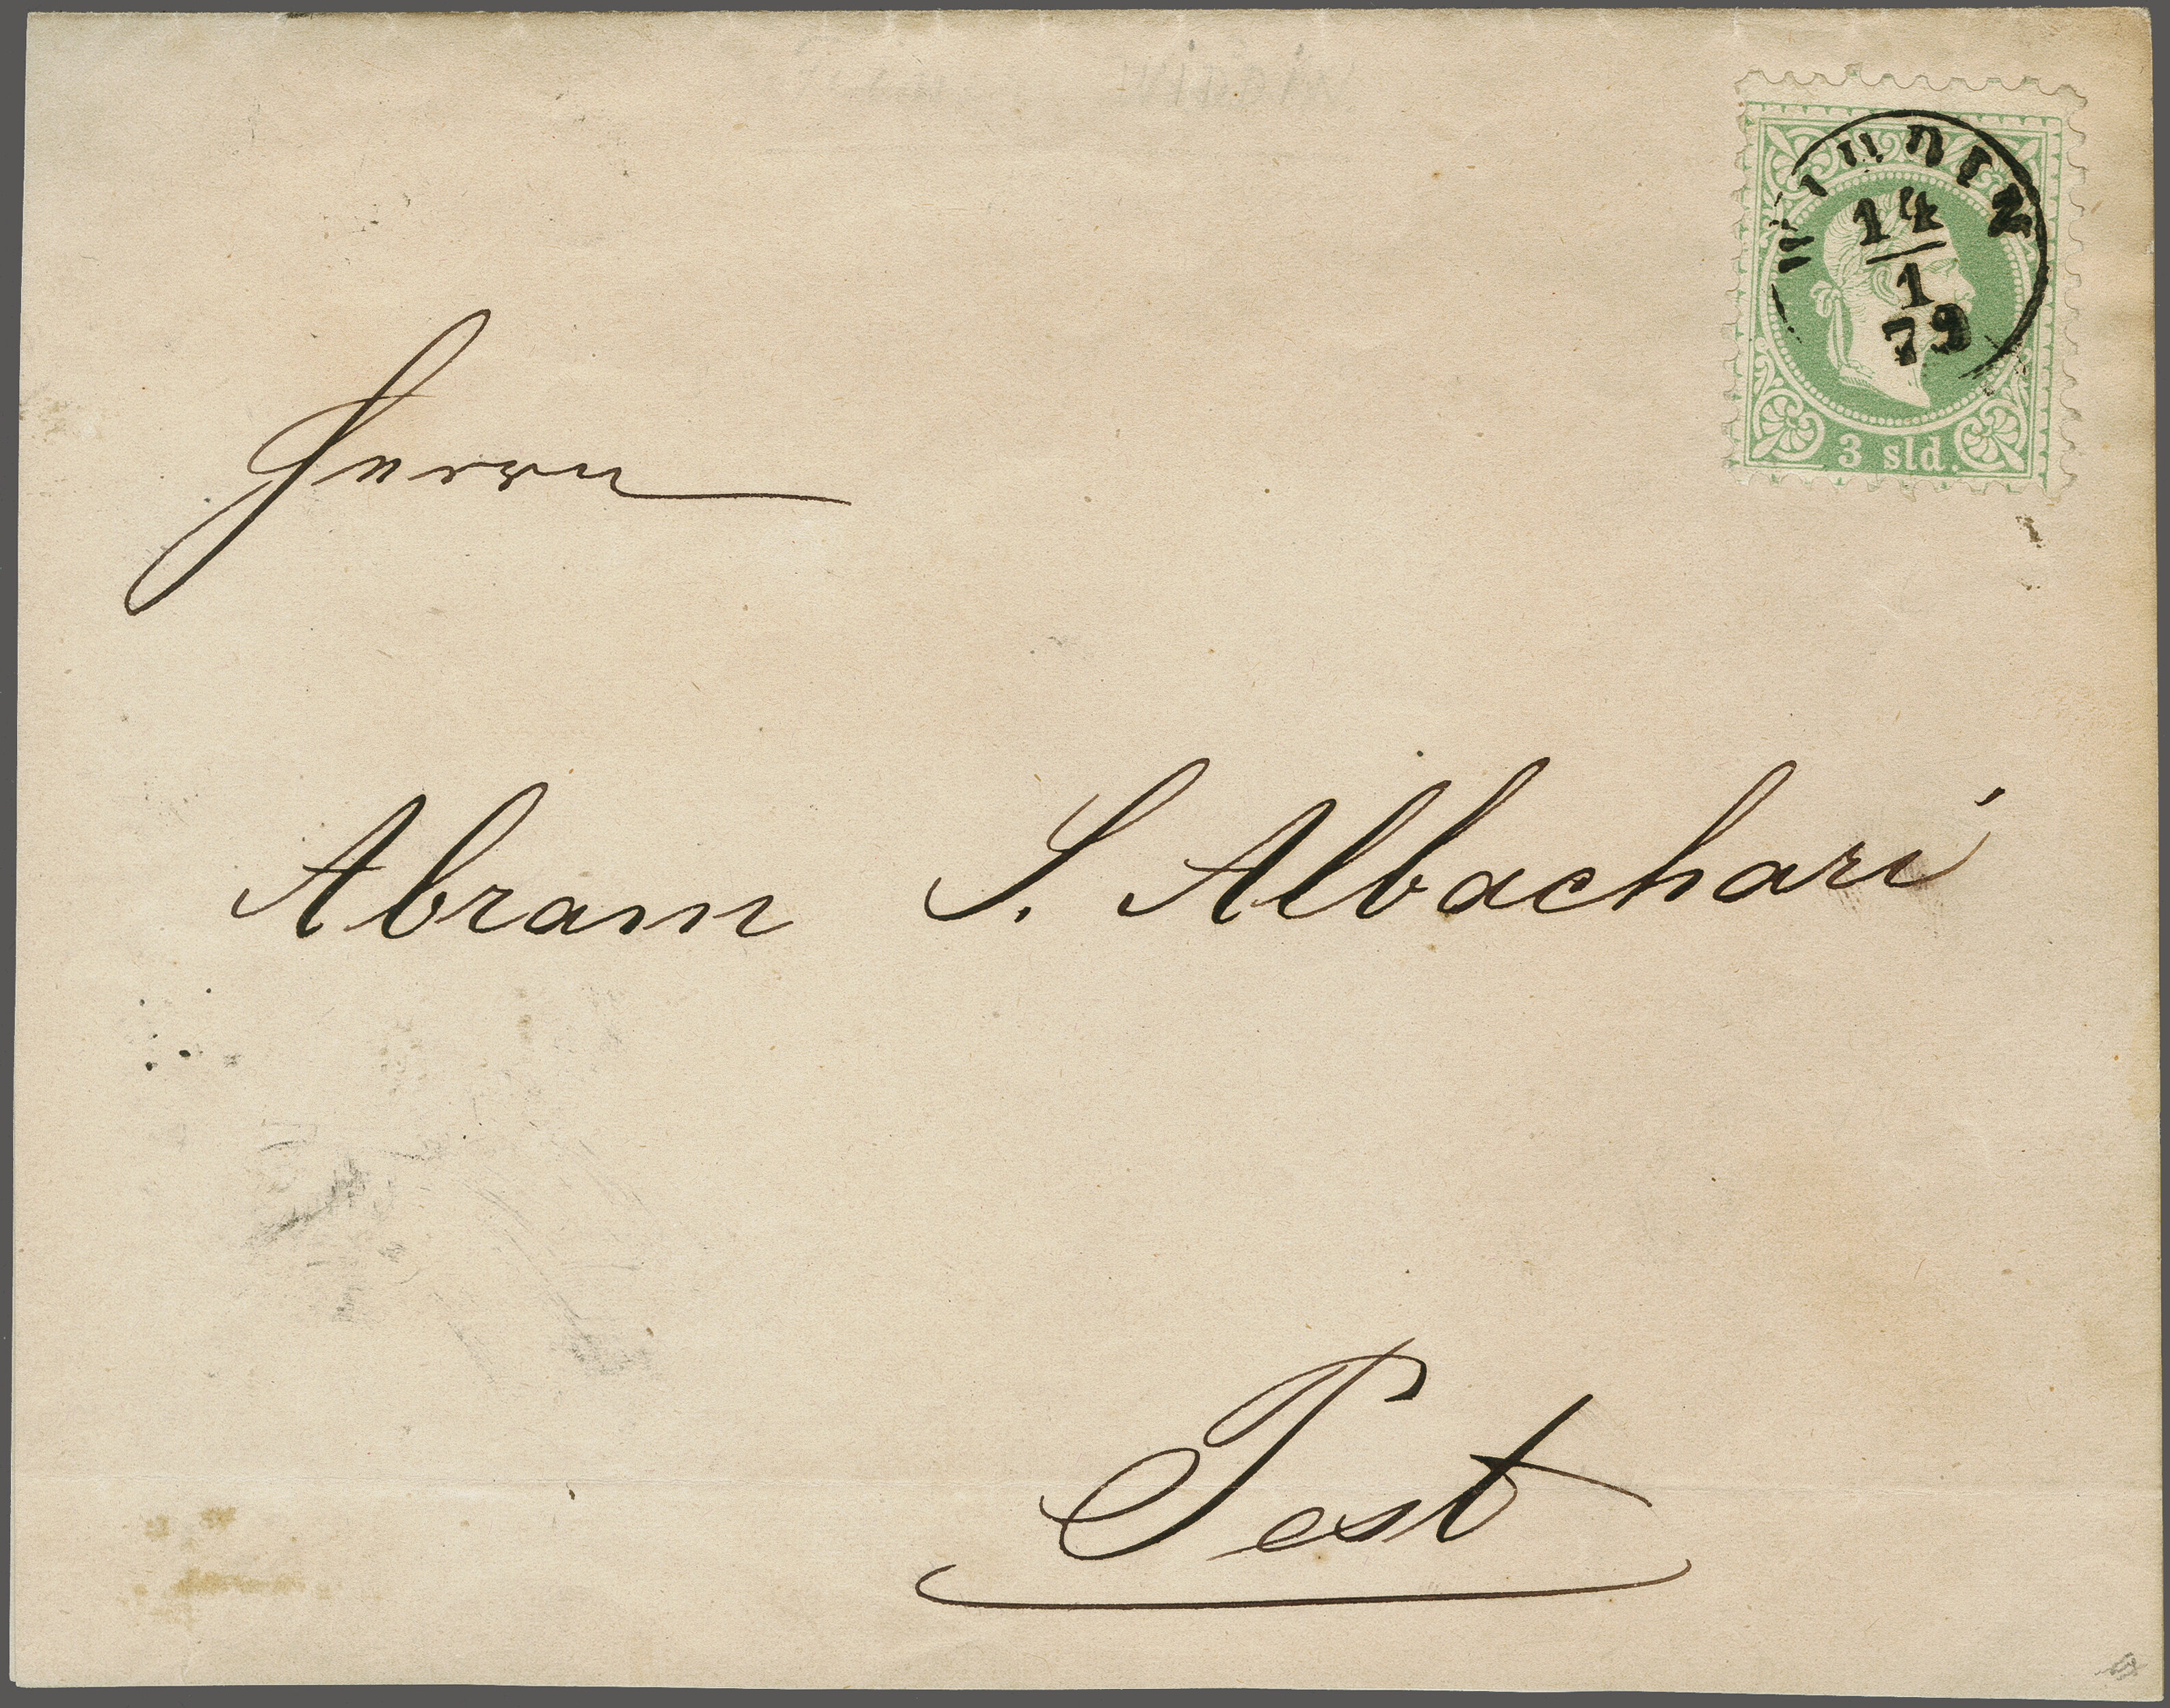 14
1
79
3 sld.
Herrn
Abram S. Albachari
Pest